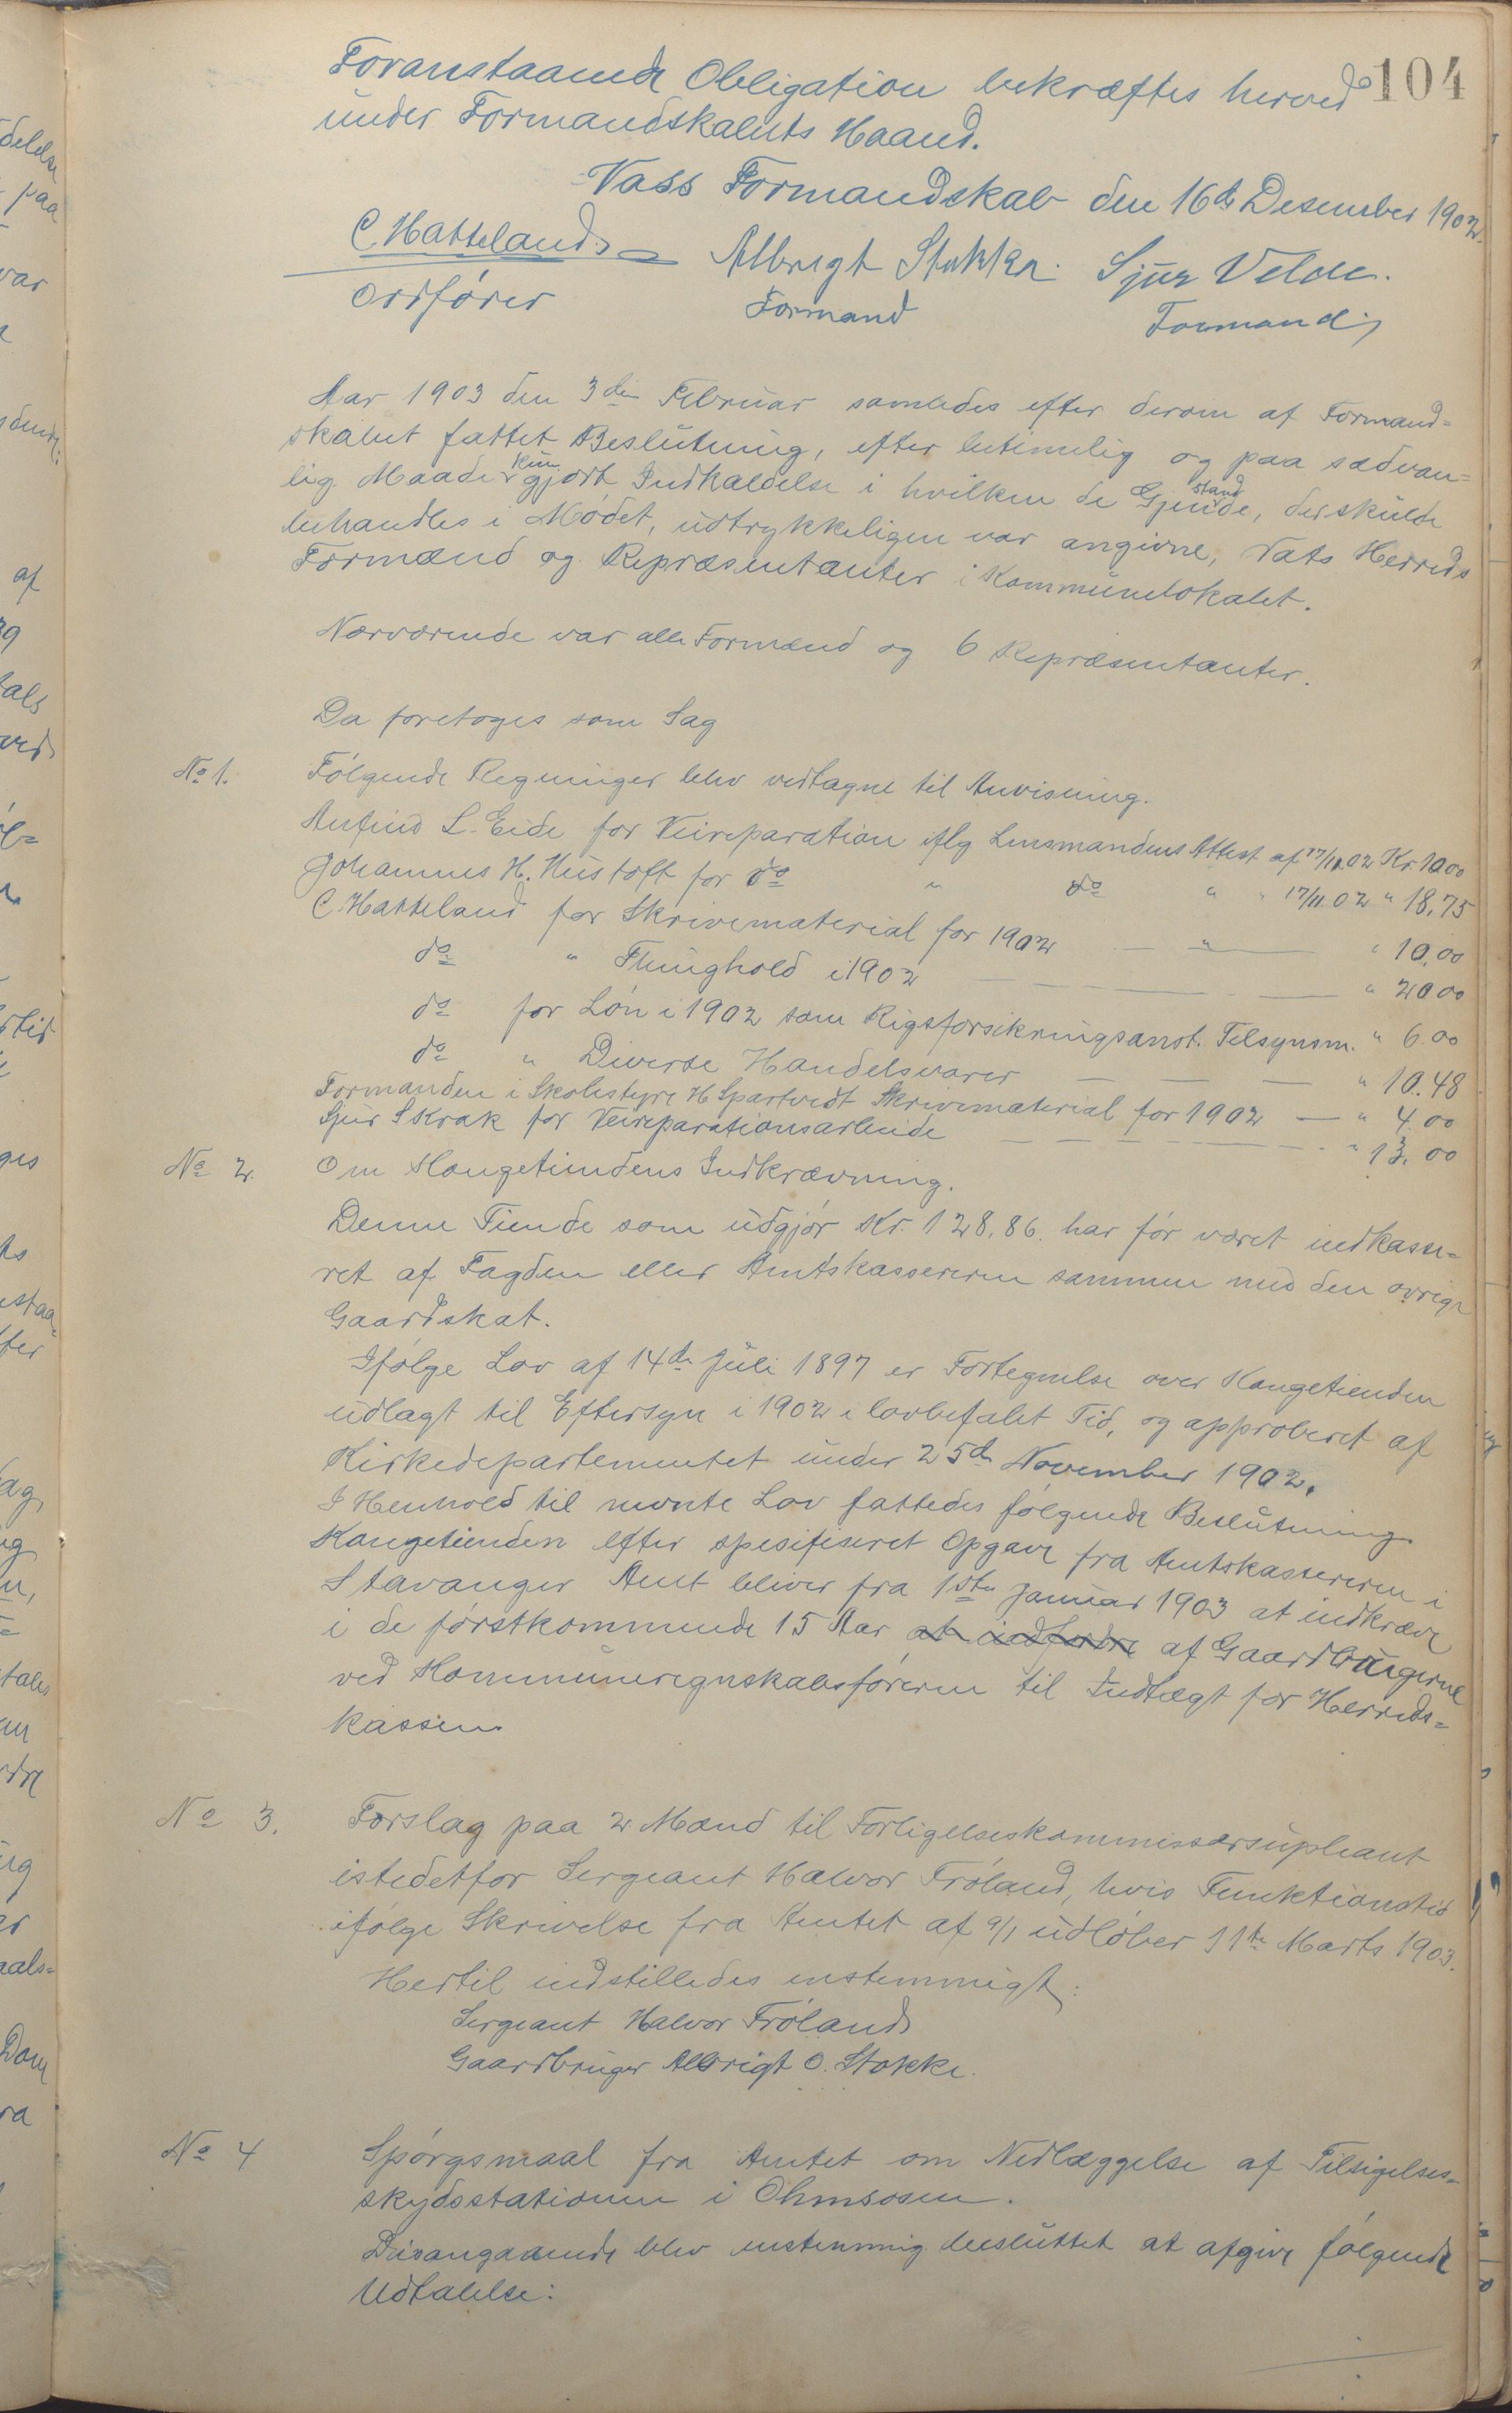 104
Foranstaaende Obligation bekræftes herved
under Formandskabets Haand.
Vass Formandskab den 16de Desember 1902.
C. Hatteland Albrigt Stokke. Sjur Velde.
Ordfører Formand Formand
Aar 1903 den 3die Februar samledes efter derom af Formand=
skabet fattet Beslutning, efter betimelig og paa sædvan=
lig Maade kundgjort Indkaldelse i hvilken de Gjenstande, der skulde
behandles i Mødet, udtrykkeligen var angivne, Vats Herreds
Formænd og Repræsentanter i Kommunelokalet.
Nærværende var alle Formænd og 6 Repræsentanter.
Da foretoges som Sag
No 1. Følgende Regninger blev vedtagne til Anvisning.
Anfind L. Eide for Veireparation iflg Lensmandens Attest af 17/11.02 Kr. 10.00
Johannes H. Hustoft for do " do " " 17/11.02 " 18,75
C. Hatteland for Skrivematerial for 1902 — " — " 10.00
do " Thinghold i 1902 — — — " 20.00
do for Løn i 1902 som Rigsforsikringsanst. Tilsynsm. " 6.00
do " Diverse Handelsvarer — — — " 10.48
Formanden i Skolestyre H Spartvedt Skrivematerial for 1902 — " 4.00
Sjur S Krak for Veireparationsarbeide — — — — " 13.00
No 2. Om Kongetiendens Indkrævning.
Denne Tiende som udgjør Kr. 128,86. har før været indkasse=
ret af Fogden eller Amtskassereren sammen med den øvrige
Gaardskat.
Ifølge Lov af 14de Juli 1897 er Fortegnelse over Kongetienden
udlagt til Eftersyn i 1902 i lovbefalet Tid, og approberet af
Kirkedepartementet under 25de November 1902.
I Henhold til nævnte Lov fattedes følgende Beslutning
Kongetienden efter spesifiseret Opgave fra Amtskassereren i
Stavanger Amt bliver fra 1ste Januar 1903 at indkræve
i de førstkommende 15 Aar at indfordre af Gaardbrugerne
ved Kommuneregnskabsføreren til Indtægt for Herreds=
kassen.
No 3. Forslag paa 2 Mænd til Forligelseskommissærsupleant
istedetfor Sergeant Halvor Frøland, hvis Funktionstid
ifølge Skrivelse fra Amtet af 9/1 udløber 11te Marts 1903.
Hertil indstilledes enstemmigt:
Sergeant Halvor Frøland
Gaardbruger Albrigt O. Stokke.
No 4 Spørgsmaal fra Amtet om Nedlæggelse af Tilsigelses=
skydsstationen i Ølmsosen.
Desangaaende blev enstemmig besluttet at afgive følgende
Udtalelse: